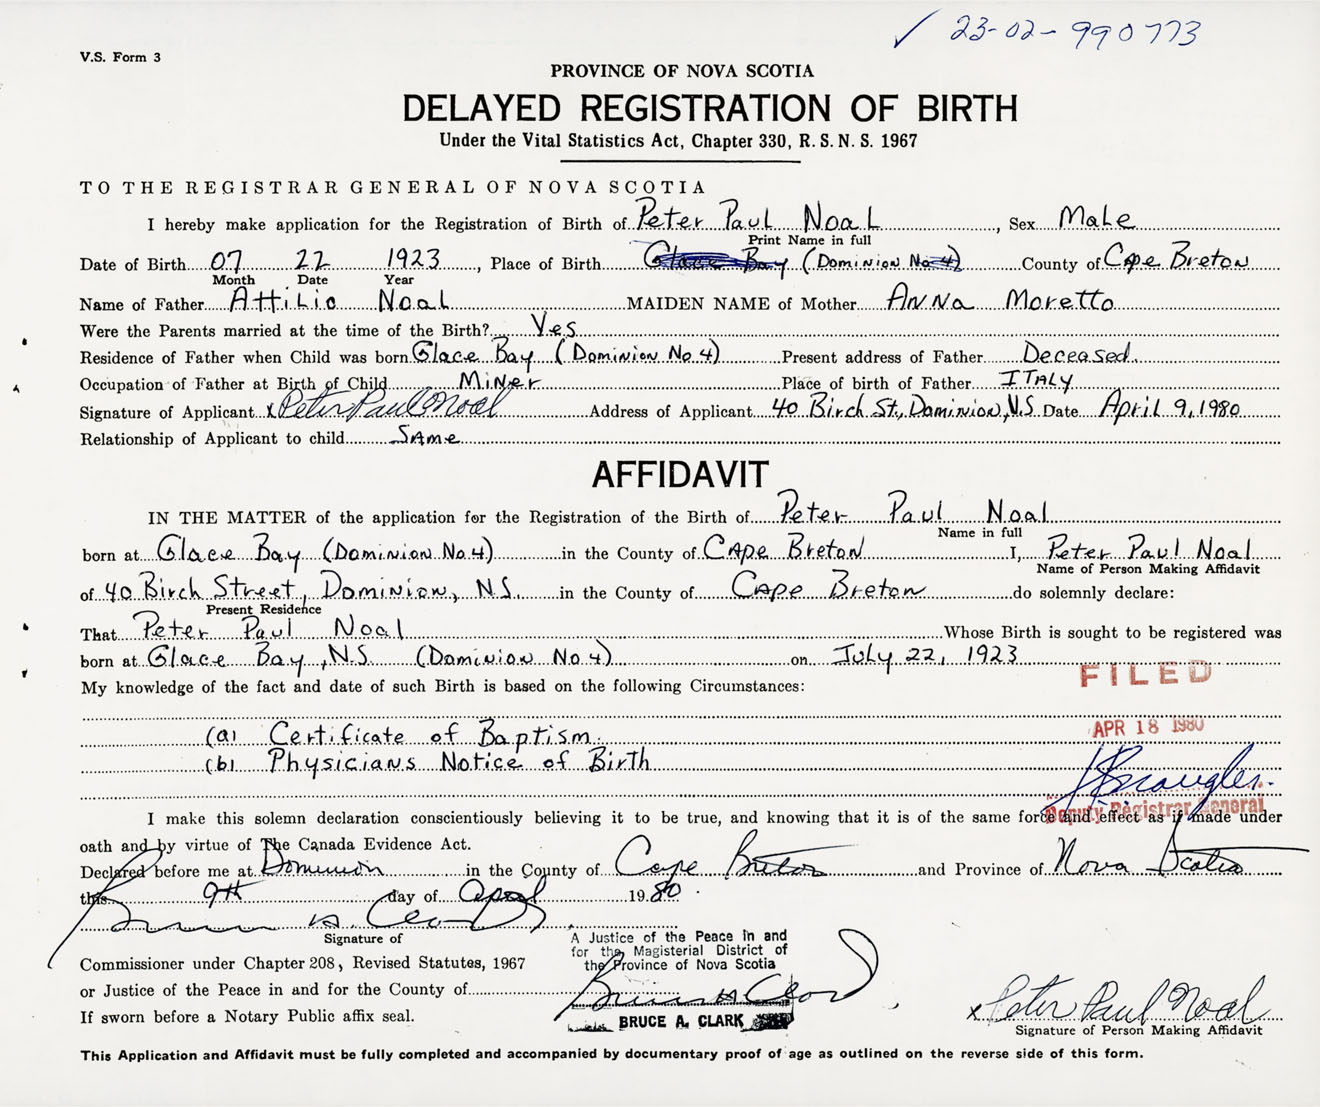 ✓ 23-02-990773
V.S. Form 3
PROVINCE OF NOVA SCOTIA
DELAYED REGISTRATION OF BIRTH
Under the Vital Statistics Act, Chapter 330, R. S. N. S. 1967
TO THE REGISTRAR GENERAL OF NOVA SCOTIA
I hereby make application for the Registration of Birth of Peter Paul Noal, Sex Male
Print Name in full
Date of Birth 07 22 1923, Place of Birth Glace Bay (Dominion No 4) County of Cape Breton
Month Date Year
Name of Father Attilio Noal MAIDEN NAME of Mother Anna Moretto
Were the Parents married at the time of the Birth? Yes
Residence of Father when Child was born Glace Bay (Dominion No. 4) Present address of Father Deceased.
Occupation of Father at Birth of Child Miner Place of birth of Father ITALY
Signature of Applicant x Peter Paul Noal Address of Applicant 40 Birch St., Dominion, N.S. Date April 9, 1980
Relationship of Applicant to child Same
AFFIDAVIT
IN THE MATTER of the application for the Registration of the Birth of Peter Paul Noal
Name in full
born at Glace Bay (Dominion No 4) in the County of Cape Breton I, Peter Paul Noal
Name of Person Making Affidavit
of 40 Birch Street, Dominion, N.S. in the County of Cape Breton do solemnly declare:
Present Residence
That Peter Paul Noal Whose Birth is sought to be registered was
born at Glace Bay, N.S. (Dominion No 4) on July 22, 1923
My knowledge of the fact and date of such Birth is based on the following Circumstances:
FILED
(a) Certificate of Baptism.
APR 18 1980
(b) Physicians Notice of Birth
Deputy Registrar General
I make this solemn declaration conscientiously believing it to be true, and knowing that it is of the same force and effect as if made under
oath and by virtue of The Canada Evidence Act.
Declared before me at Dominion in the County of Cape Breton and Province of Nova Scotia
this 9th day of April 1980.
Signature of
A Justice of the Peace in and
for the Magisterial District of
the Province of Nova Scotia
Commissioner under Chapter 208, Revised Statutes, 1967
or Justice of the Peace in and for the County of
BRUCE A. CLARK
x Peter Paul Noal
If sworn before a Notary Public affix seal.
Signature of Person Making Affidavit
This Application and Affidavit must be fully completed and accompanied by documentary proof of age as outlined on the reverse side of this form.